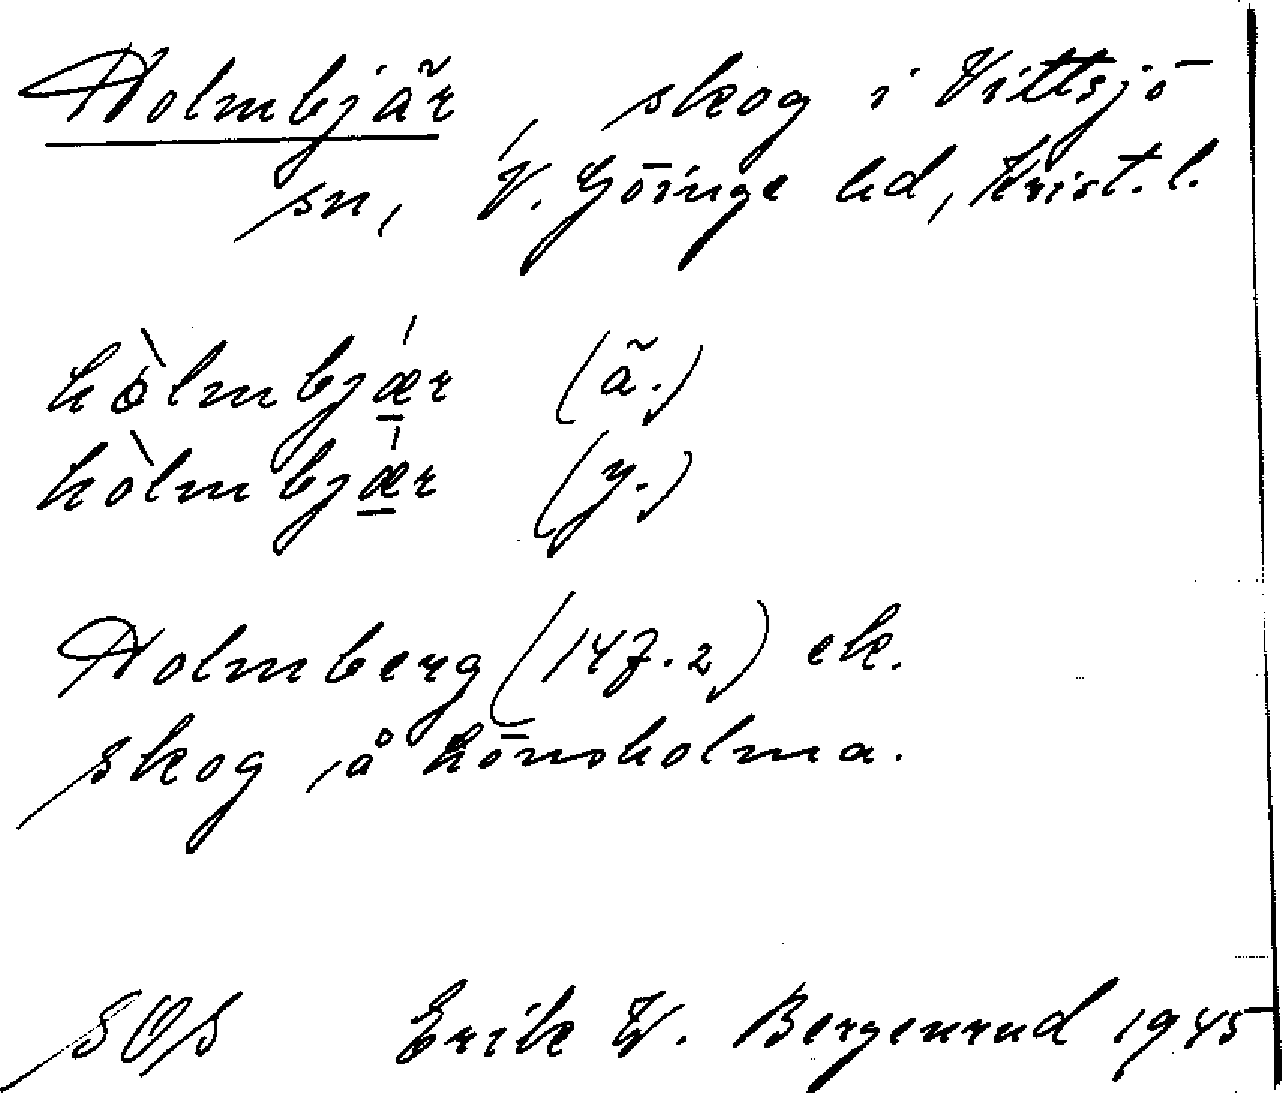 Holmbjär, skog i Vittsjö
sn, V. Göinge hd, Krist. l.
hòlmbjǽr (ä.)
hòlmbjǽr (y.)
Holmberg (147.2) ek.
skog, å hönsholma.
SOS Erik W. Bergenrud 1945